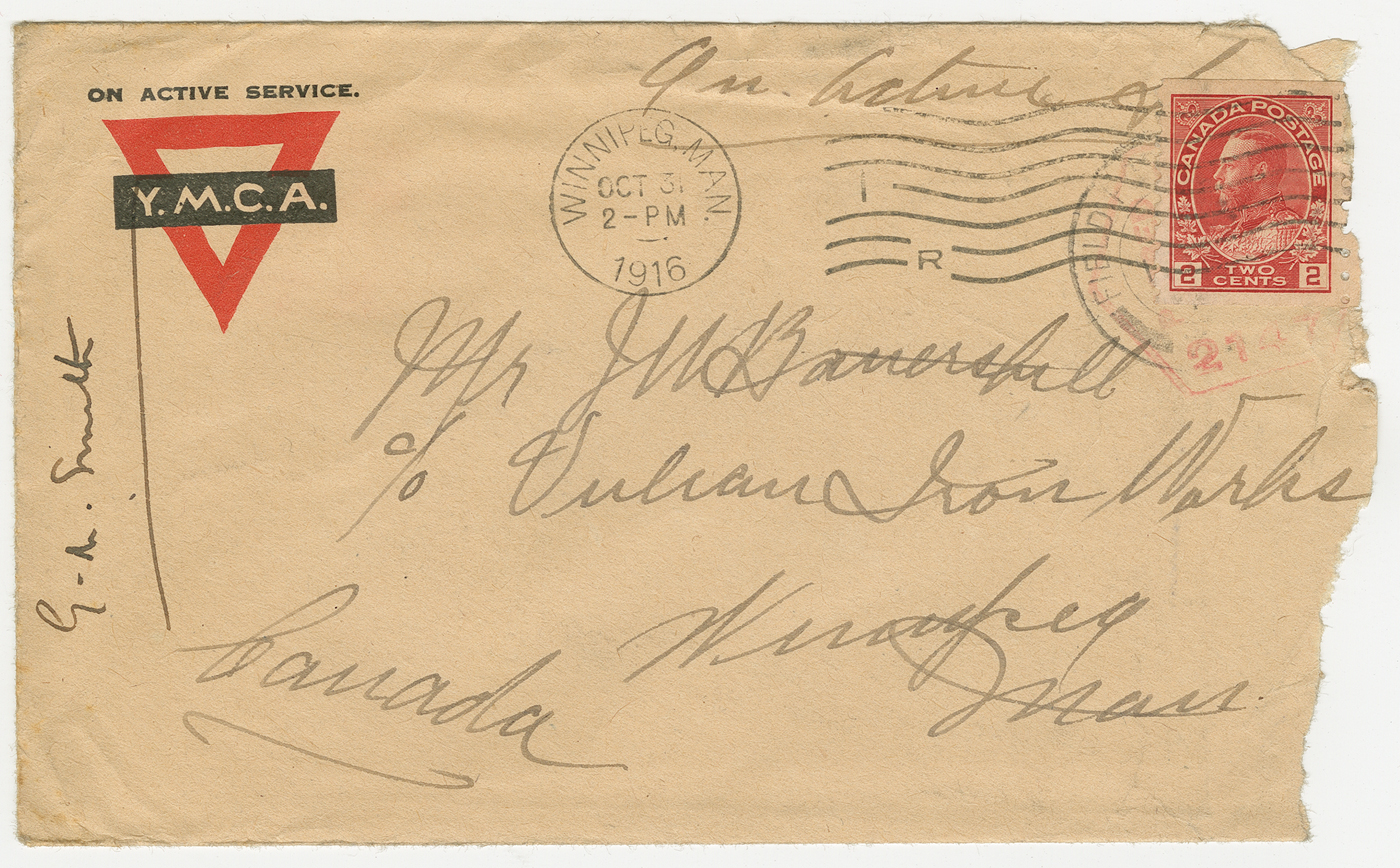 ON ACTIVE SERVICE.
Y.M.C.A.
On Active
WINNIPEG, MAN.
OCT 31
2-PM
1916
I
R
FIELD
CANADA POSTAGE
2 TWO CENTS 2
2747
Mr J W
c/o Vulcan Iron Works
Winnipeg
Man
Canada